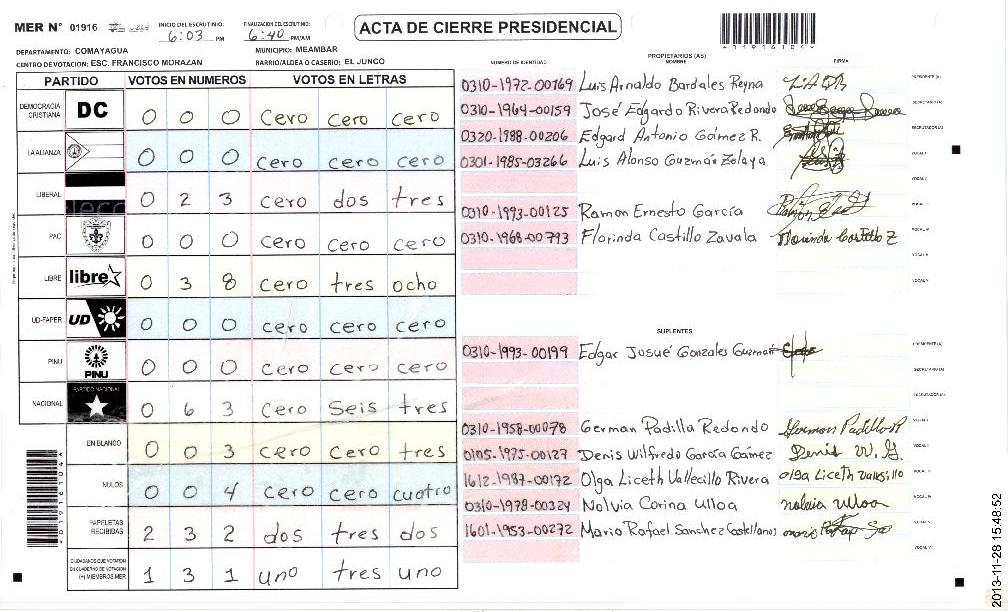 MER N° 01916
INICIO DEL ESCRUTINIO:
6:03 PM
FINALIZACION DEL ESCRUTINIO:
6:40 PM/AM
ACTA DE CIERRE PRESIDENCIAL
*01916104*
DEPARTAMENTO: COMAYAGUA
MUNICIPIO: MEAMBAR
CENTRO DE VOTACION: ESC. FRANCISCO MORAZAN
BARRIO/ALDEA O CASERIO: EL JUNCO
PARTIDO VOTOS EN NUMEROS VOTOS EN LETRAS
DEMOCRACIA CRISTIANA DC 0 0 0 cero cero cero
LA ALIANZA 0 0 0 cero cero cero
LIBERAL 0 2 3 cero dos tres
PAC 0 0 0 cero cero cero
LIBRE libre 0 3 8 cero tres ocho
UD-FAPER UD 0 0 0 cero cero cero
PINU PINU 0 0 0 cero cero cero
NACIONAL PARTIDO NACIONAL 0 6 3 cero seis tres
EN BLANCO 0 0 3 cero cero tres
NULOS 0 0 4 cero cero cuatro
PAPELETAS RECIBIDAS 2 3 2 dos tres dos
CIUDADANOS QUE VOTARON EN CUADERNO DE VOTACION (+) MIEMBROS MER 1 3 1 uno tres uno
NUMERO DE IDENTIDAD
PROPIETARIOS (AS)
NOMBRE
FIRMA
0310-1972-00169 Luis Arnaldo Bardales Reyna PRESIDENTE (A)
0310-1964-00159 José Edgardo Rivera Redondo SECRETARIO (A)
0320-1988-00206 Edgard Antonio Gámez R. ESCRUTADOR (A)
0301-1985-03266 Luis Alonso Guzmán Zelaya VOCAL I
VOCAL II
0310-1993-00125 Ramon Ernesto García VOCAL III
0310-1968-00793 Florinda Castillo Zavala Florinda Castillo Z VOCAL IV
VOCAL V
SUPLENTES
0310-1993-00199 Edgar Josué Gonzales Guzmán PRESIDENTE (A)
SECRETARIO (A)
ESCRUTADOR (A)
0310-1958-00078 German Padilla Redondo German Padilla R VOCAL I
0105-1975-00127 Denis Wilfredo García Gámez Denis W. G. VOCAL II
1612-1987-00172 Olga Liceth Vallecillo Rivera olga Liceth Vallesillo VOCAL III
0310-1978-00324 Nolvia Corina Ulloa nolvia ulloa VOCAL IV
1601-1953-00272 Mario Rafael Sanchez Castellanos VOCAL V
VOCAL VI
*01916104*
2013-11-28 15:48:52